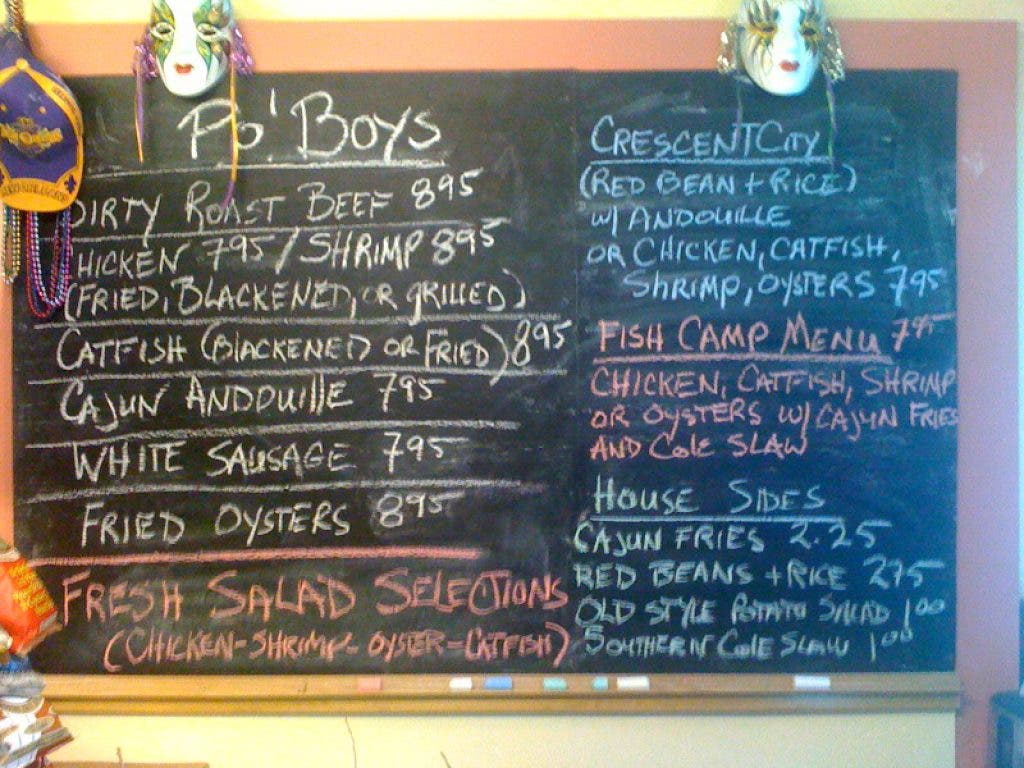 Po' Boys
DIRTY ROAST BEEF 8 95
HICKEN 7 95 / SHRIMP 8 95
(FRIED, BLACKENED, OR GRILLED)
CATFISH (BLACKENED OR FRIED) 8 95
CAJUN ANDOUILLE 7 95
WHITE SAUSAGE 7 95
FRIED OYSTERS 8 95
FRESH SALAD SELECTIONS
(CHICKEN-SHRIMP-OYSTER-CATFISH)
CRESCENT CITY
(RED BEAN + RICE)
W/ ANDOUILLE
OR CHICKEN, CATFISH,
SHRIMP, OYSTERS 7 95
FISH CAMP MENU 7 95
CHICKEN, CATFISH, SHRIMP
OR OYSTERS W/ CAJUN FRIES
AND COLE SLAW
HOUSE SIDES
CAJUN FRIES 2.25
RED BEANS + RICE 2 75
OLD STYLE POTATO SALAD 1 00
SOUTHERN COLE SLAW 1 00